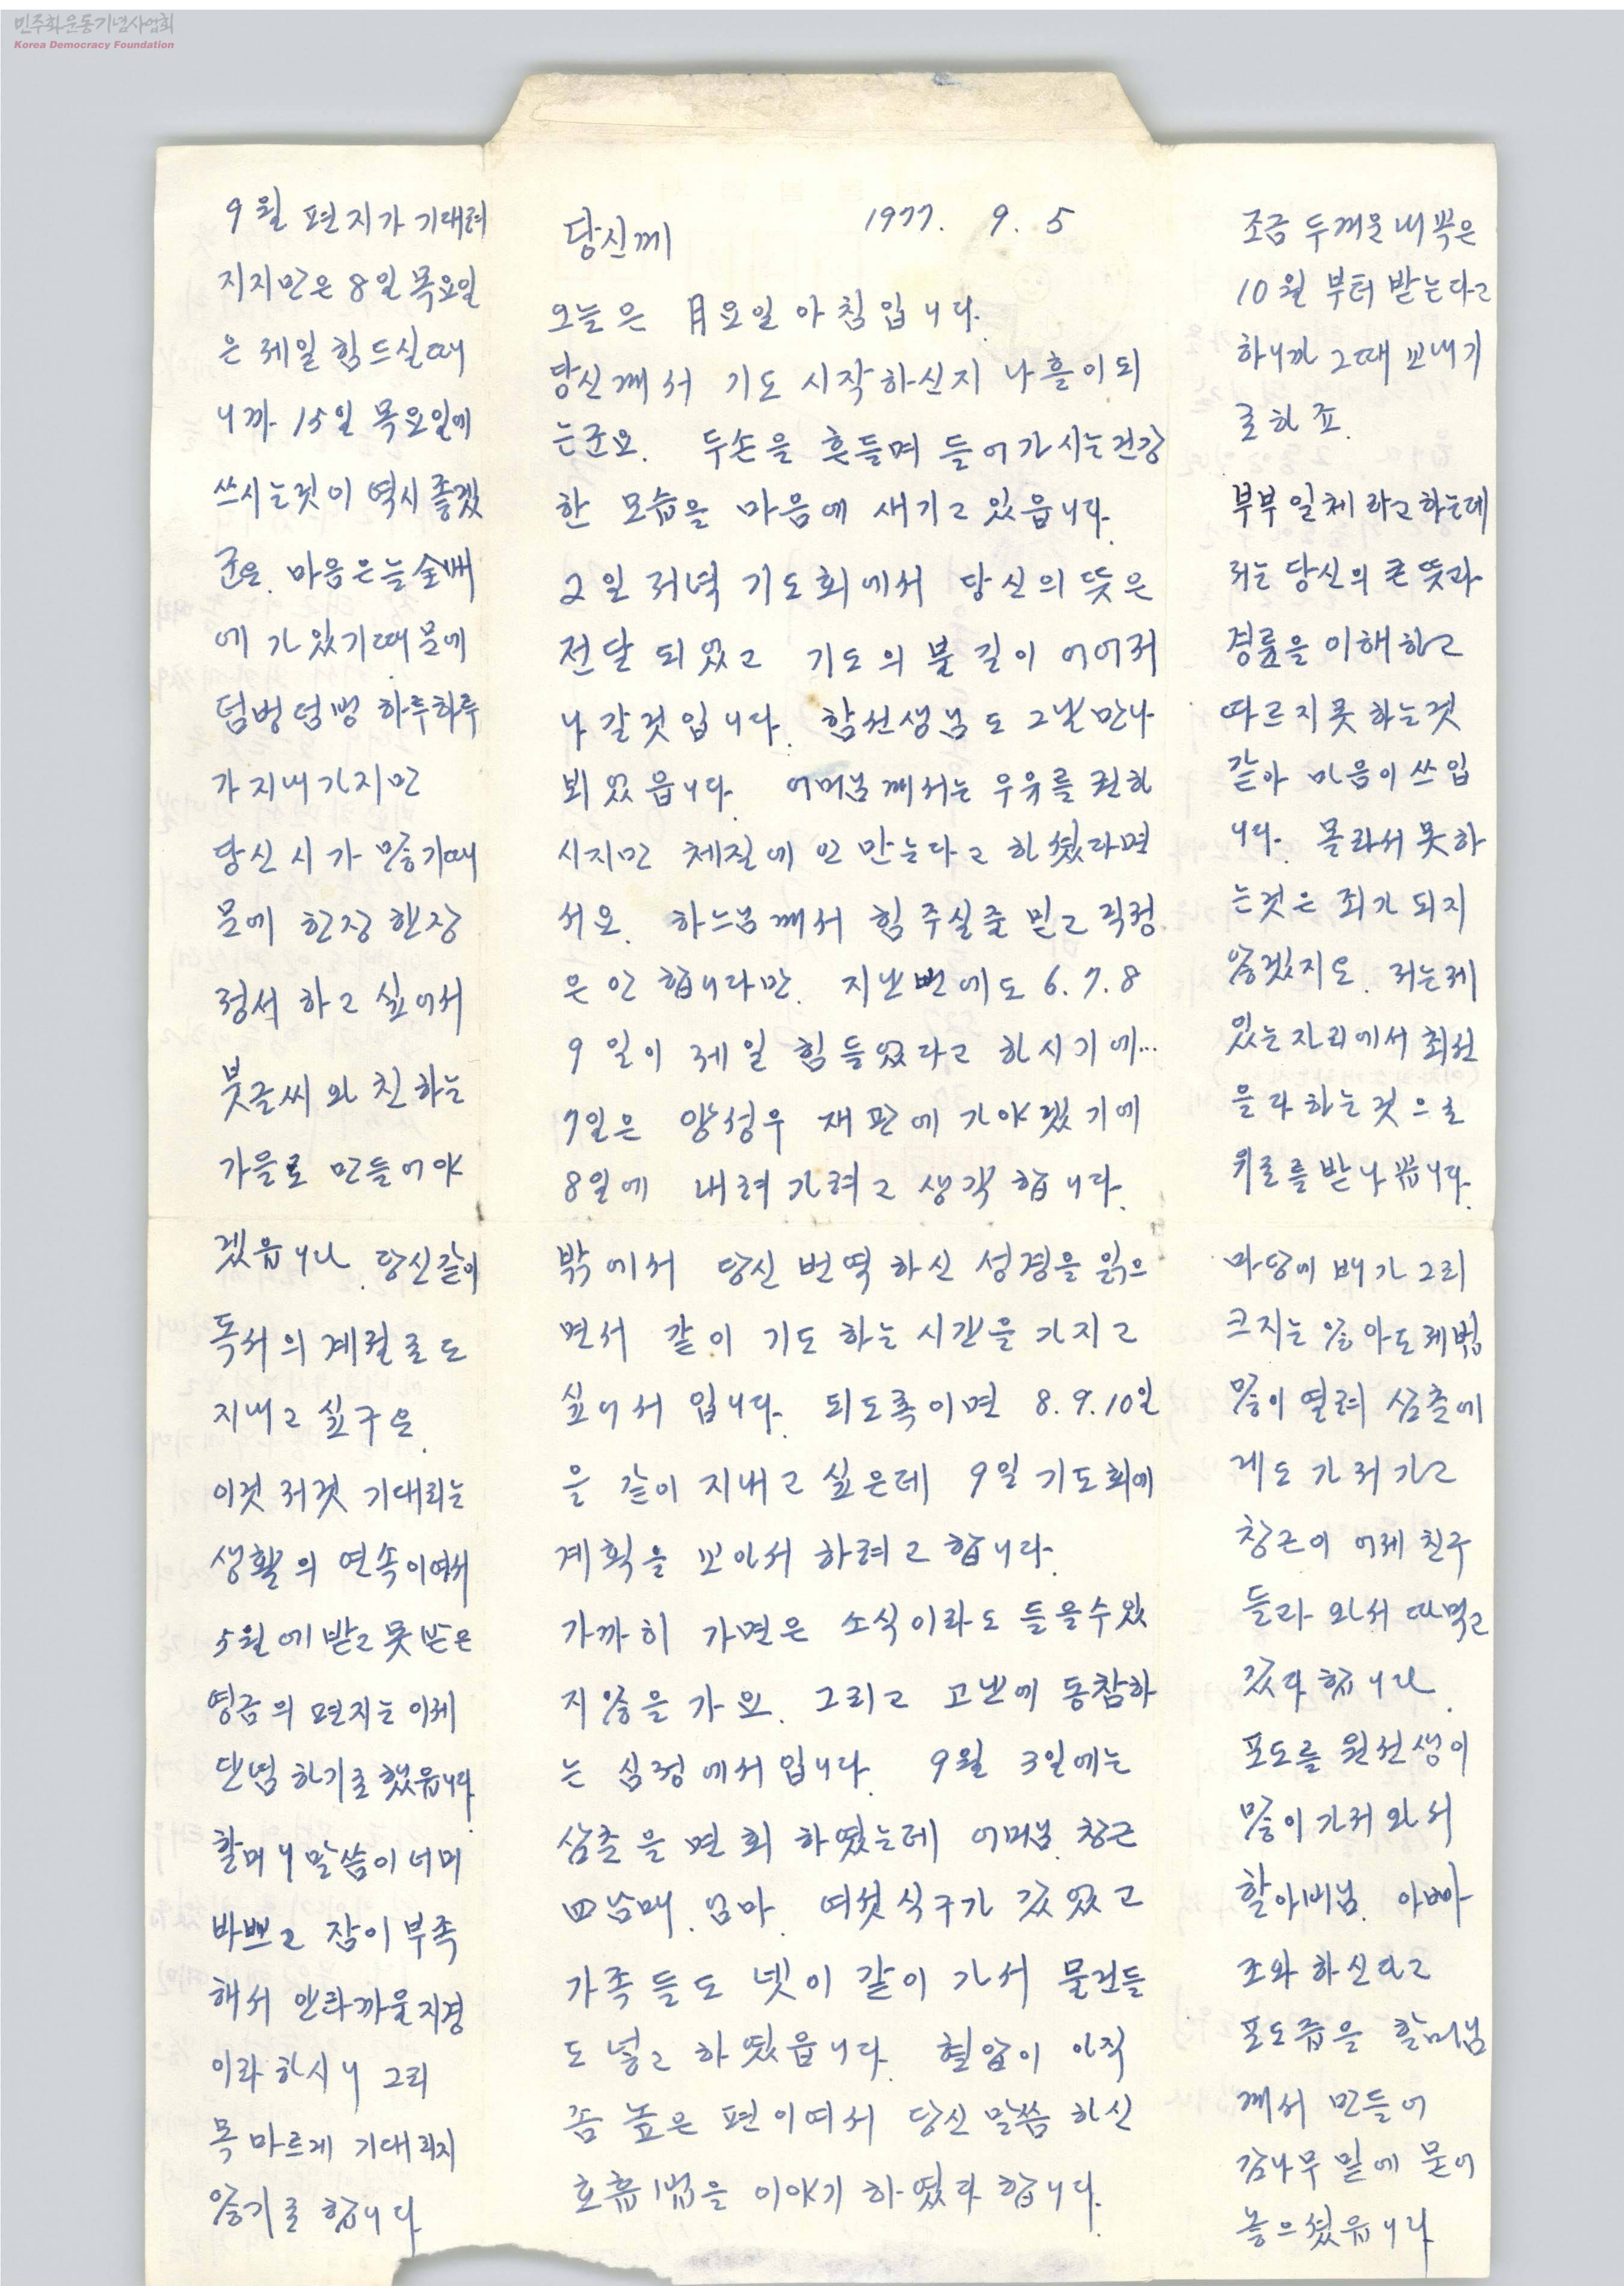 민주화운동기념사업회
Korea Democracy Foundation
당신께 1977. 9. 5
오늘은 月요일 아침입니다.
당신께서 기도 시작하신지 나흘이 되
는군요. 두손을 흔들며 들어가시는 건강
한 모습을 마음에 새기고 있읍니다.
2일 저녁 기도회에서 당신의 뜻은
전달 되었고 기도의 불길이 이어져
나갈것입니다. 함선생님도 그날 만나
뵈었읍니다. 어머님께서는 우유를 권하
시지만 체질에 안 맞는다고 하셨다면
서요. 하느님께서 힘 주실줄 믿고 걱정
은 안 합니다만. 지난번에도 6. 7. 8
9일이 제일 힘들었다고 하시기에...
7일은 양성우 재판에 가야겠기에
8일에 내려가려고 생각합니다.
밖에서 당신 번역하신 성경을 읽으
면서 같이 기도하는 시간을 가지고
싶어서 입니다. 되도록이면 8. 9. 10일
을 같이 지내고 싶은데 9일 기도회에
계획을 보아서 하려고 합니다.
가까히 가면은 소식이라도 들을수 있
지 않을가요. 그리고 고난에 동참하
는 심정에서 입니다. 9월 3일에는
삼촌을 면회 하였는데 어머님. 창근
四남매. 엄마. 여섯식구가 갔었고
가족들도 넷이 같이 가서 물건들
도 넣고 하였읍니다. 혈압이 아직
좀 높은 편이여서 당신 말씀 하신
호흡법을 이야기 하였다 합니다.
조금 두꺼운 내복은
10월부터 받는다고
하니까 그때 보내기
로 하죠.
부부일체라고 하는데
저는 당신의 큰 뜻과
경륜을 이해하고
따르지 못하는것
같아 마음이 쓰입
니다. 몰라서 못하
는것은 죄가 되지
않겠지요. 저는 제
있는 자리에서 최선
을 다하는 것으로
위로를 받나 봅니다.
마당에 배가 그리
크지는 않아도 제법
많이 열려 삼촌에
게도 가져가고
창근이 어제 친구
들과 와서 따먹고
갔다 합니다.
포도를 원선생이
많이 가져와서
할아버님. 아빠
조와하신다고
포도즙을 할머님
께서 만들어
감나무 밑에 묻어
놓으셨읍니다
9월 편지가 기대려
지지만은 8일 목요일
은 제일 힘드실때
니까 15일 목요일에
쓰시는것이 역시 좋겠
군요. 마음은 늘 全배
에 가 있기때문에
덤벙덤벙 하루하루
가 지내가지만
당신 시가 많기때
문에 한장 한장
정서하고 싶어서
붓글씨와 친하는
가을로 만들어야
겠읍니다. 당신같이
독서의 계절로도
지내고 싶구요.
이것 저것 기대리는
생활의 연속이여서
5월에 받고 못받은
영금의 편지는 이제
단념하기로 했읍니다.
할머니 말씀이 너머
바쁘고 잠이 부족
해서 안타까울 지경
이라 하시니 그리
목마르게 기대리지
않기로 합니다.